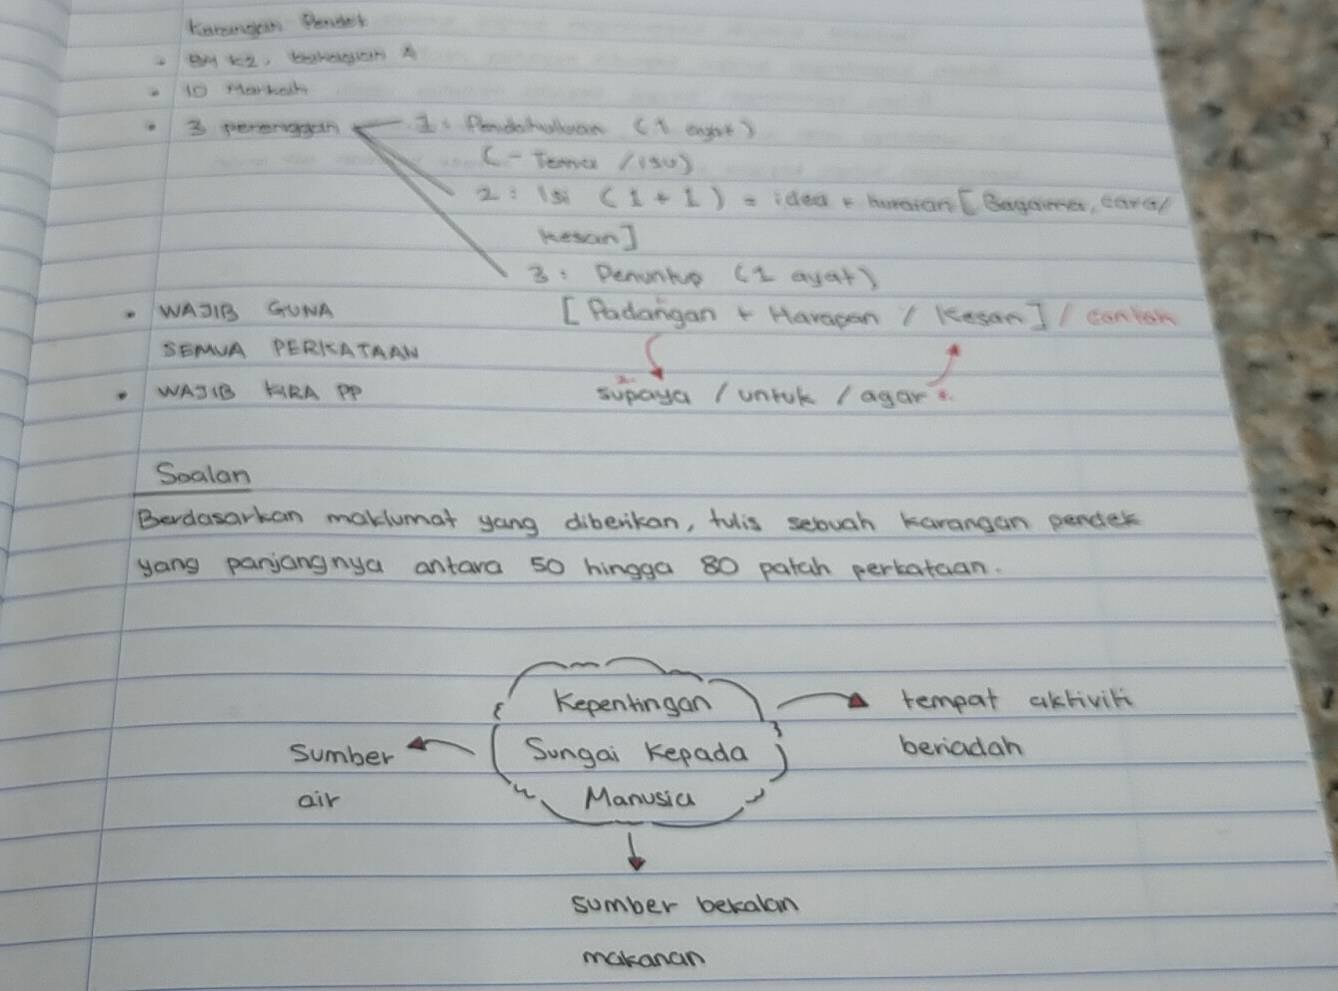 Karangan Pendek
• BM K2, bahagian A
• 10 Markah
• 3 perenggan 1: Pendahuluan (1 ayat)
(- Tema / isu)
2: Isi (1 + 1) = idea + huraian [Bagaimana, cara/
kesan]
3: Penuntup (1 ayat)
• WAJIB GUNA [Padangan + Harapan / Kesan] / contoh
SEMUA PERKATAAN
• WAJIB KIRA PP supaya / untuk / agar
Soalan
Berdasarkan maklumat yang diberikan, tulis sebuah karangan pendek
yang panjangnya antara 50 hingga 80 patah perkataan.
Kepentingan
Sungai Kepada
Manusia
tempat aktiviti
beriadah
Sumber
air
sumber bekalan
makanan